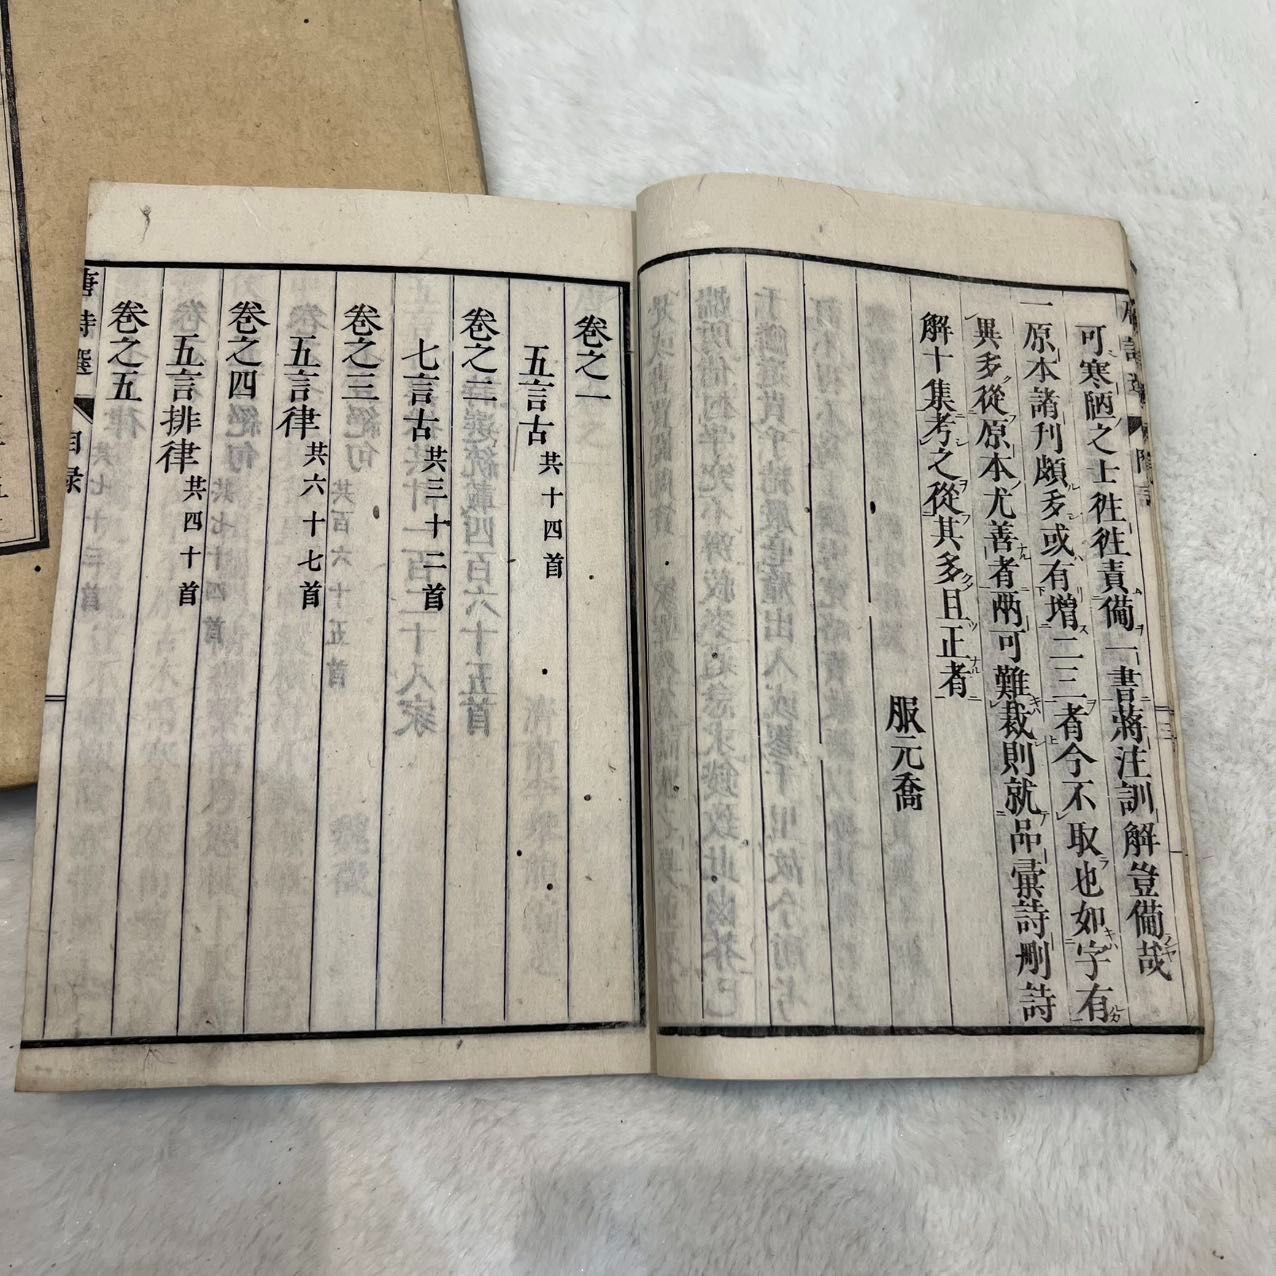 可寒陋之士徃徃責備一書蔣注訓解豈備哉
一原本諸刊頗多或有增二三者今不取也如字有
異多從原本尤善者兩可難裁則就品彙詩刪詩
解十集考之從其多且正者
服元喬
卷之一
五言古 共十四首
卷之二
七言古 共三十二首
卷之三
五言律 共六十七首
卷之四
五言排律 共四十首
卷之五
唐詩選 目録